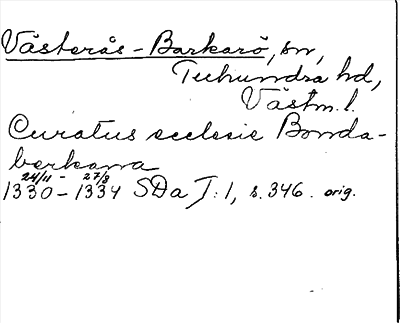 Västerås-Barkarö, sn,
Tuhundra hd,
Västm. l.
Curatus ecclesie Bonda-
berkarra
24/11 - 27/8
1330-1334 SDa I: 1, s. 346. orig.